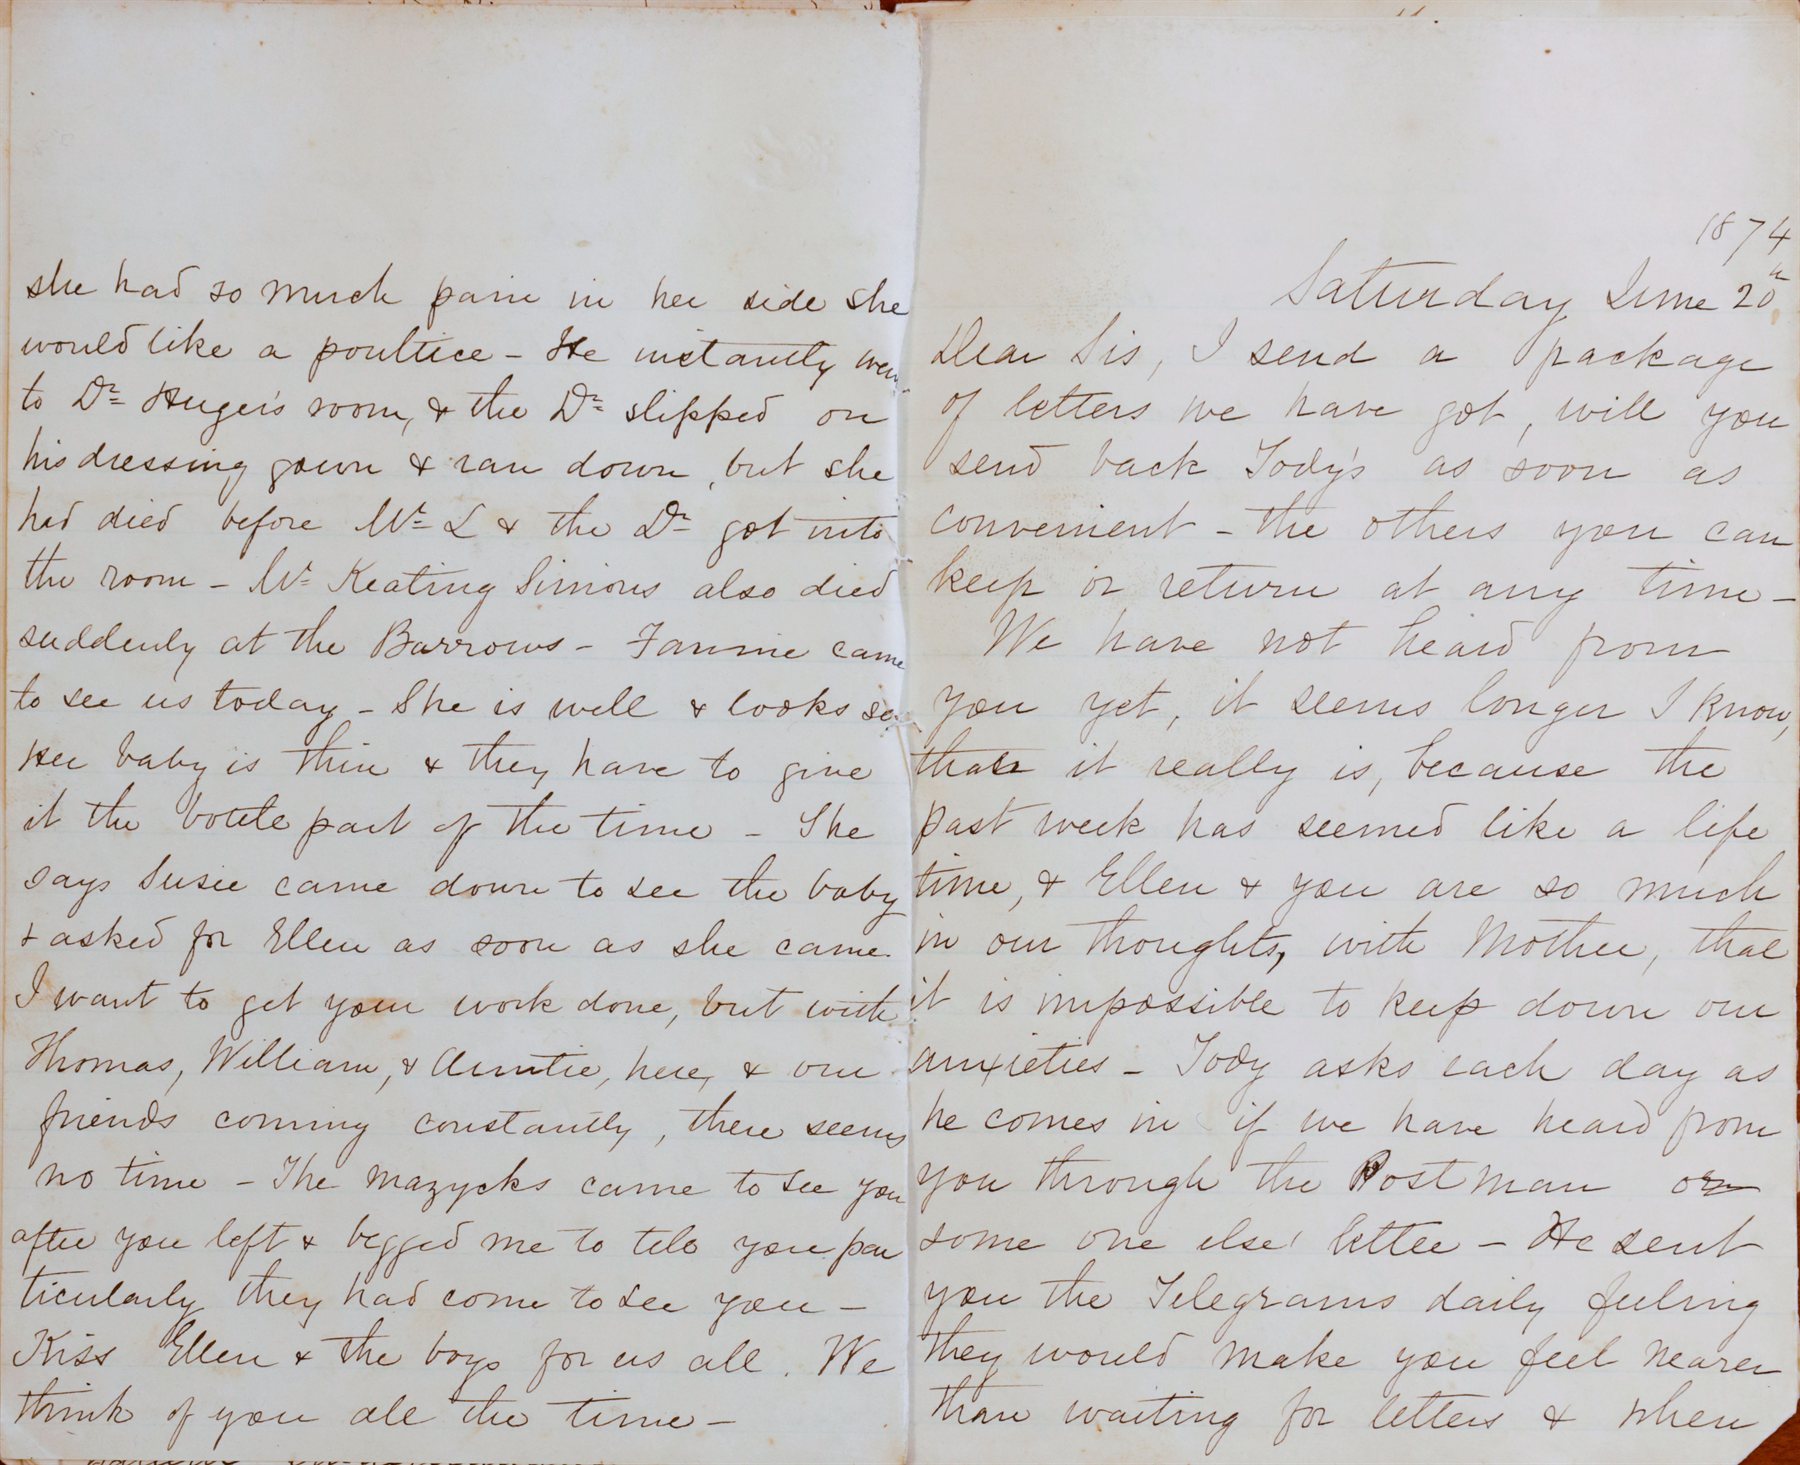 she had so much pain in her side she
would like a poultice - He instantly wen
to Dr Huger's room, & the Dr slipped on
his dressing gown & ran down, but she
had died before Mr L & the Dr got into
the room - Mr Keating Simons also died
suddenly at the Barrows - Fannie came
to see us today - She is well & looks so.
Her baby is thin & they have to give
it the bottle part of the time - She
says Susie came down to see the baby
& asked for Ellen as soon as she came.
I want to get your work done, but with
Thomas, William, & Auntie, here, & our
friends coming constantly, there seems
no time - The Mazycks came to see you
after you left & begged me to tell you par
ticularly they had come to see you -
Kiss Ellen & the boys for us all. We
think of you all the time -
1874
Saturday June 20th
Dear Sis, I send a package
of letters we have got, will you
send back Tody's as soon as
convenient - the others you can
keep or return at any time -
We have not heard from
you yet, it seems longer I know,
than it really is, because the
past week has seemed like a life
time, & Ellen & you are so much
in our thoughts, with Mother, that
it is impossible to keep down our
anxieties - Tody asks each day as
he comes in if we have heard from
you through the Postman or
some one else' letter - He sent
you the Telegrams daily feeling
they would make you feel nearer
than waiting for letters & when